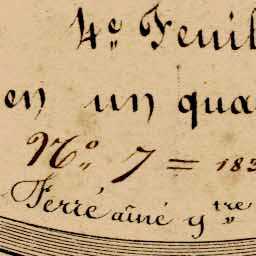 4.e Feuil
en un qua
No. 7 = 183
Ferré aîné g.tre